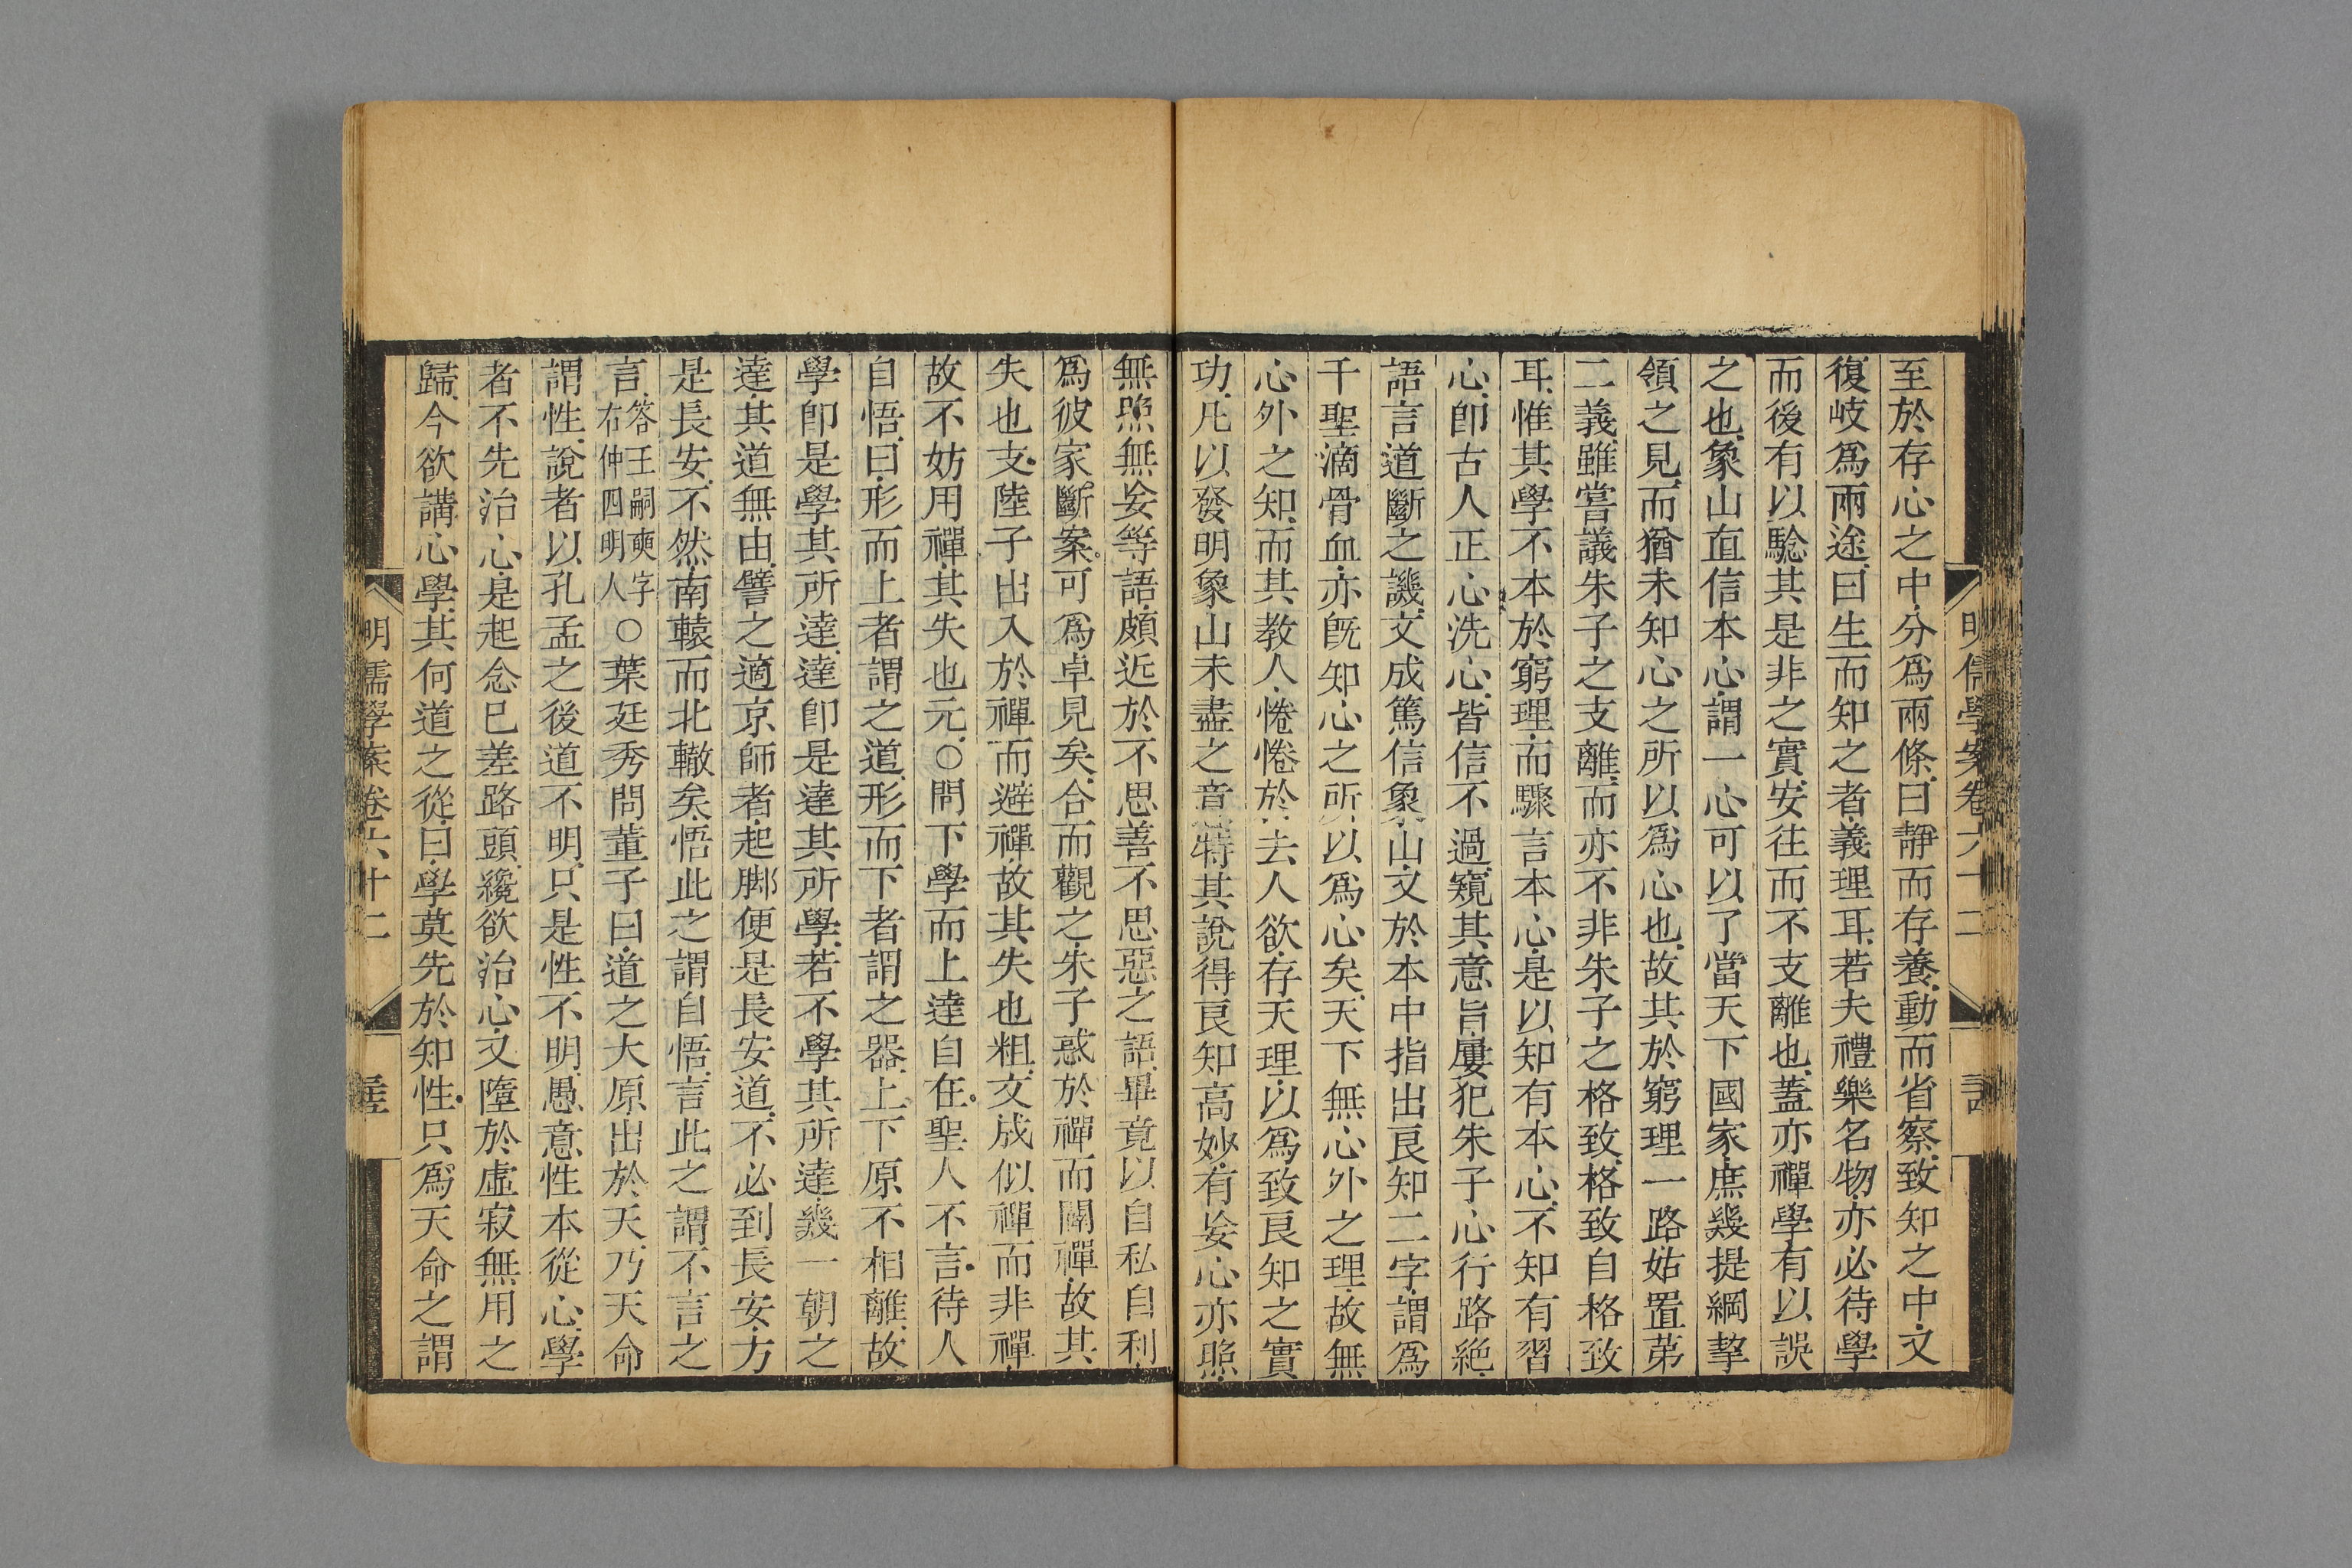 至於存心之中分爲兩條曰靜而存養動而省察致知之中又
復岐爲兩途曰生而知之者義理耳若夫禮樂名物亦必待學
而後有以騐其是非之實安往而不支離也蓋亦禪學有以誤
之也象山直信本心謂一心可以了當天下國家庶幾提綱挈
領之見而猶未知心之所以爲心也故其於窮理一路姑置第
二義雖嘗議朱子之支離而亦不非朱子之格致格致自格致
耳惟其學不本於窮理而驟言本心是以知有本心不知有習
心卽古人正心洗心皆信不過窺其意旨屢犯朱子心行路絶
語言道斷之譏文成篤信象山又於本中指出良知二字謂爲
千聖滴骨血亦旣知心之所以爲心矣天下無心外之理故無
心外之知而其教人惓惓於去人欲存天理以爲致良知之實
功凡以發明象山未盡之意特其說得良知高妙有妄心亦照
無照無妄等語頗近於不思善不思惡之語畢竟以自私自利
爲彼家斷案可爲卓見矣合而觀之朱子惑於禪而闢禪故其
失也支陸子出入於禪而避禪故其失也粗文成似禪而非禪
故不妨用禪其失也元○問下學而上達自在聖人不言待人
自悟曰形而上者謂之道形而下者謂之器上下原不相離故
學卽是學其所達達卽是達其所學若不學其所達幾一朝之
達其道無由譬之適京師者起脚便是長安道不必到長安方
是長安不然南轅而北轍矣悟此之謂自悟言此之謂不言之
言答王嗣奭字右仲四明人○葉廷秀問董子曰道之大原出於天乃天命
謂性說者以孔孟之後道不明只是性不明愚意性本從心學
者不先治心是起念已差路頭纔欲治心又墮於虛寂無用之
歸今欲講心學其何道之從曰學莫先於知性只爲天命之謂
明儒學案卷六十二
明儒學案卷六十二